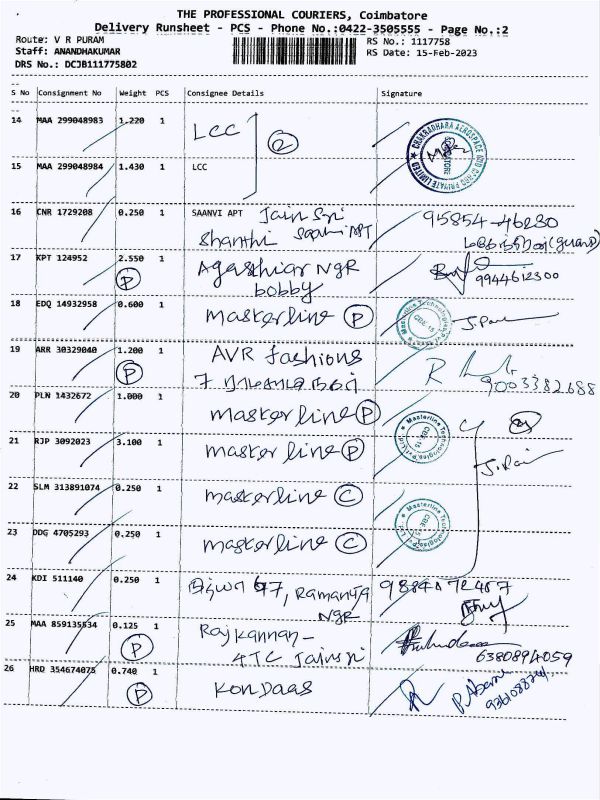 THE PROFESSIONAL COURIERS, Coimbatore
Delivery Runsheet - PCS - Phone No.:0422-3505555 - Page No.:2
Route: V R PURAM
RS No.: 1117758
Staff: ANANDHAKUMAR
RS Date: 15-Feb-2023
DRS No.: DCJB111775802
S No Consignment No Weight PCS Consignee Details Signature
14 MAA 299048983 1.220 1 LCC
CHAKRADHARA AEROSPACE AND CARGO PRIVATE LIMITED
15 MAA 299048984 1.430 1 LCC
16 CNR 1729208 0.250 1 SAANVI APT Jain Sri 95854-46230
Shanthi
17 KPT 124952 2.550 1 Agasthiar NGR
P bobby 9944612300
18 EDQ 14932958 0.600 1 masterline P Masterline Technologies J.
19 ARR 30329040 1.200 1 AVR fashions
P 7 9003382688
20 PLN 1432672 1.000 1 masterline P
21 RJP 3092023 3.100 1 masterline P Masterline Technologies J.
22 SLM 313891074 0.250 1 masterline C
23 DDG 4705293 0.250 1 masterline C Masterline Technologies
24 KDI 511140 0.250 1 67, Ramanuja
NGR
25 MAA 859135534 0.125 1 Rajkannan -
P 4TC Jainsri 6380894059
26 HRD 354674075 0.740 1 Kondaas
P